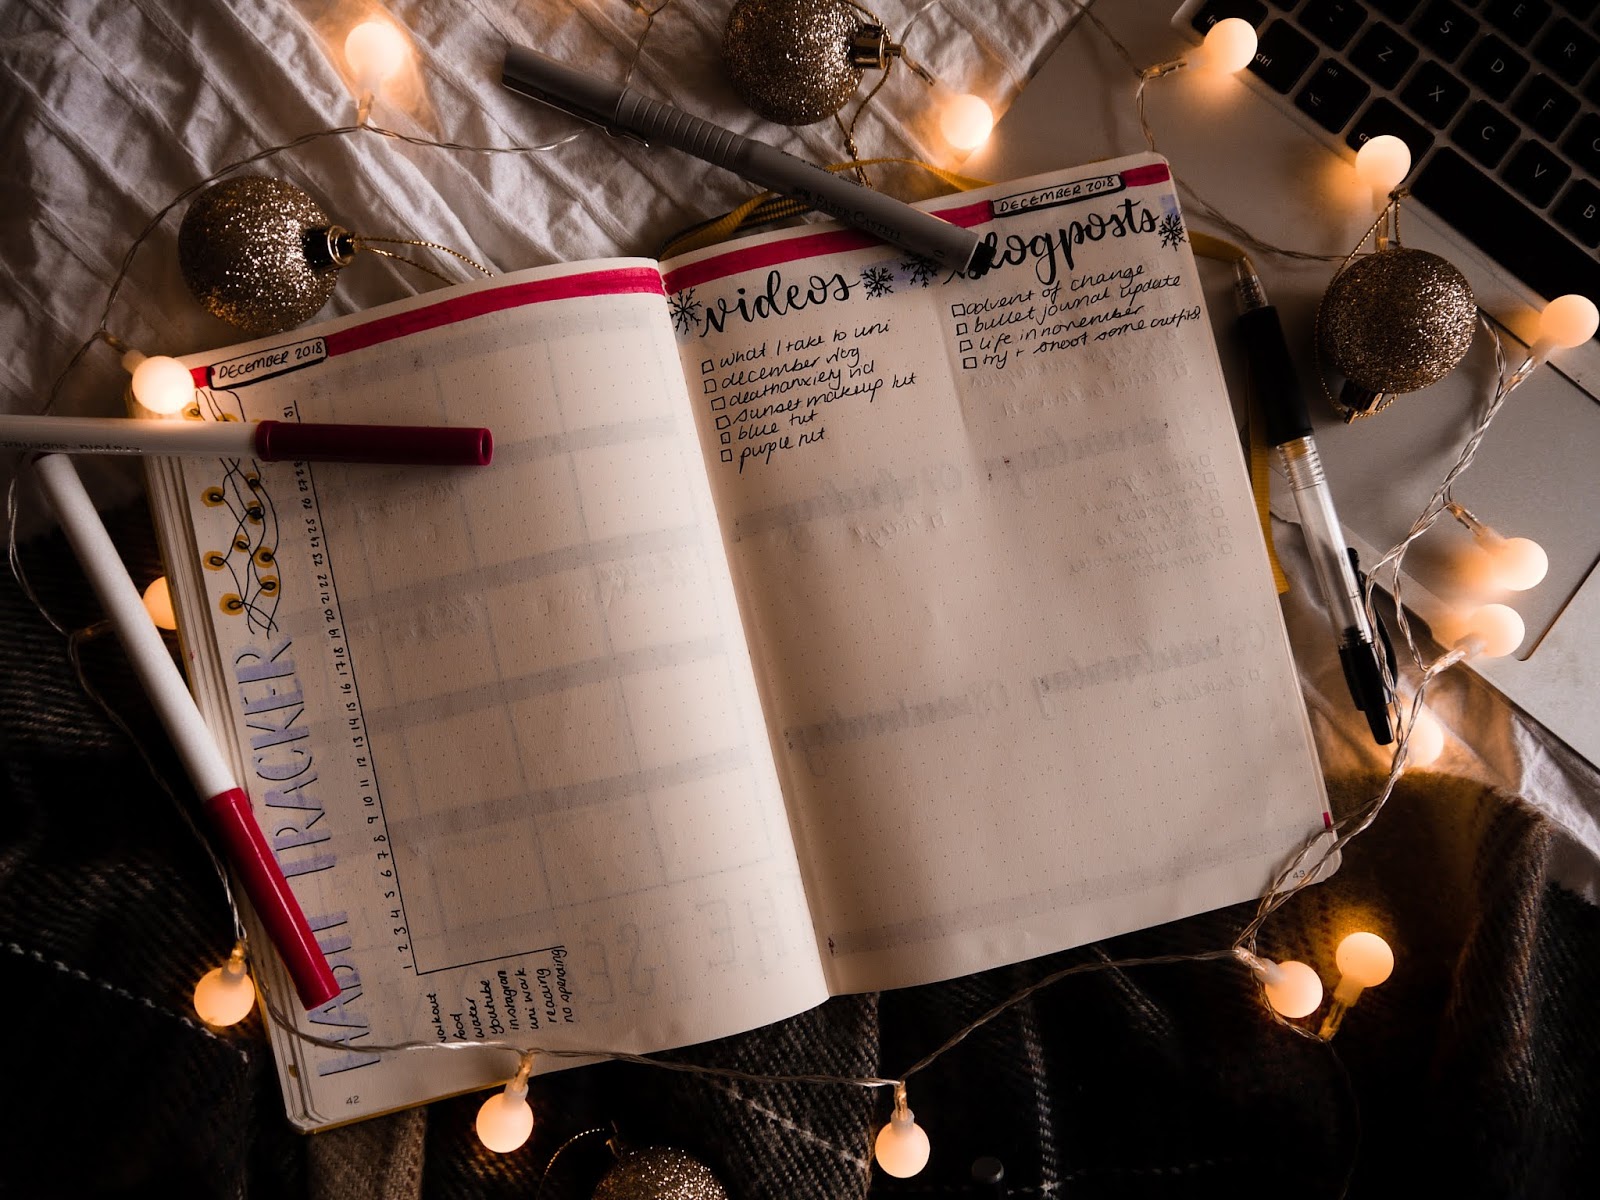 DECEMBER 2018
HABIT TRACKER
1 2 3 4 5 6 7 8 9 10 11 12 13 14 15 16 17 18 19 20 21 22 23 24 25 26 27 28 31
workout
food
water
youtube
instagram
uni work
reading
no spending
42
DECEMBER 2018
videos
what I take to uni
december vlog
deathanxiety vid
sunset makeup tut
blue tut
purple tut
blogposts
advent of change
bullet journal update
life in november
try + shoot some outfits
43
FABER-CASTELL
crayola supertips
ctrl
alt
Z
X
C
V
B
S
D
F
E
R